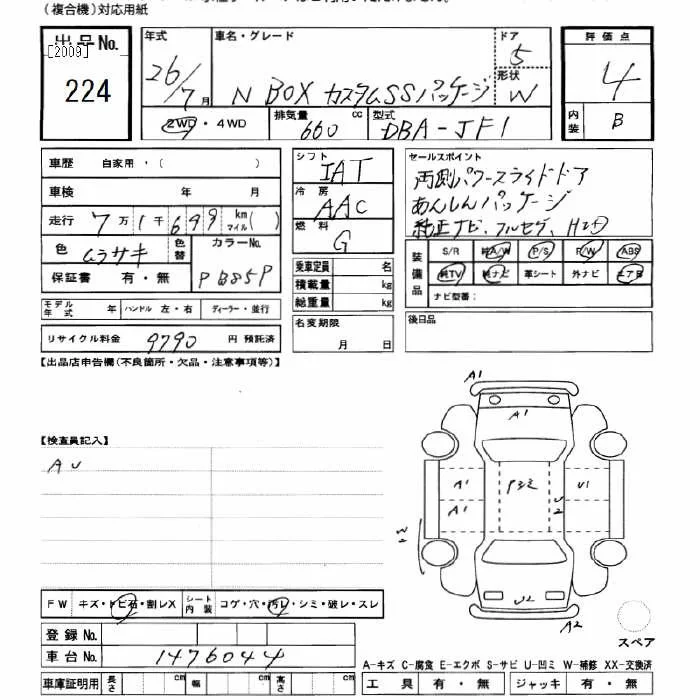 (複合機)対応用紙
出品No.
[2009]
224
年式 26/7月
車名・グレード N BOX カスタムSSパッケージ
ドア 5
形状 W
2WD・4WD
排気量 660 cc
型式 DBA-JF1
評価点 4
内装 B
車歴 自家用・( )
車検 年 月
走行 7万1千699 km マイル( )
色 ムラサキ
色替
カラーNo. PB85P
保証書 有・無
モデル年式 年 ハンドル 左・右 ディーラー・並行
リサイクル料金 9790 円 預託済
シフト IAT
冷房 AAC
燃料 G
乗車定員 名
積載量 kg
総重量 kg
名変期限 月 日
セールスポイント
両側パワースライドドア
あんしんパッケージ
純正ナビ、フルセグ、
装備品
S/R 純A/W P/S P/W ABS
純TV 純ナビ 革シート 外ナビ エアB
ナビ型番:
後日品
【出品店申告欄(不良箇所・欠品・注意事項等)】
【検査員記入】
AU
A1
A1
A1
A1
U1
U2
U2
A2
FW キズ・トビ石・割レX
シート内装 コゲ・穴・汚レ・シミ・破レ・スレ
登録No.
車台No. 1476044
車庫証明用 長さ cm 幅 cm 高さ cm
スペア
A-キズ C-腐食 E-エクボ S-サビ U-凹ミ W-補修 XX-交換済
工具 有・無 ジャッキ 有・無